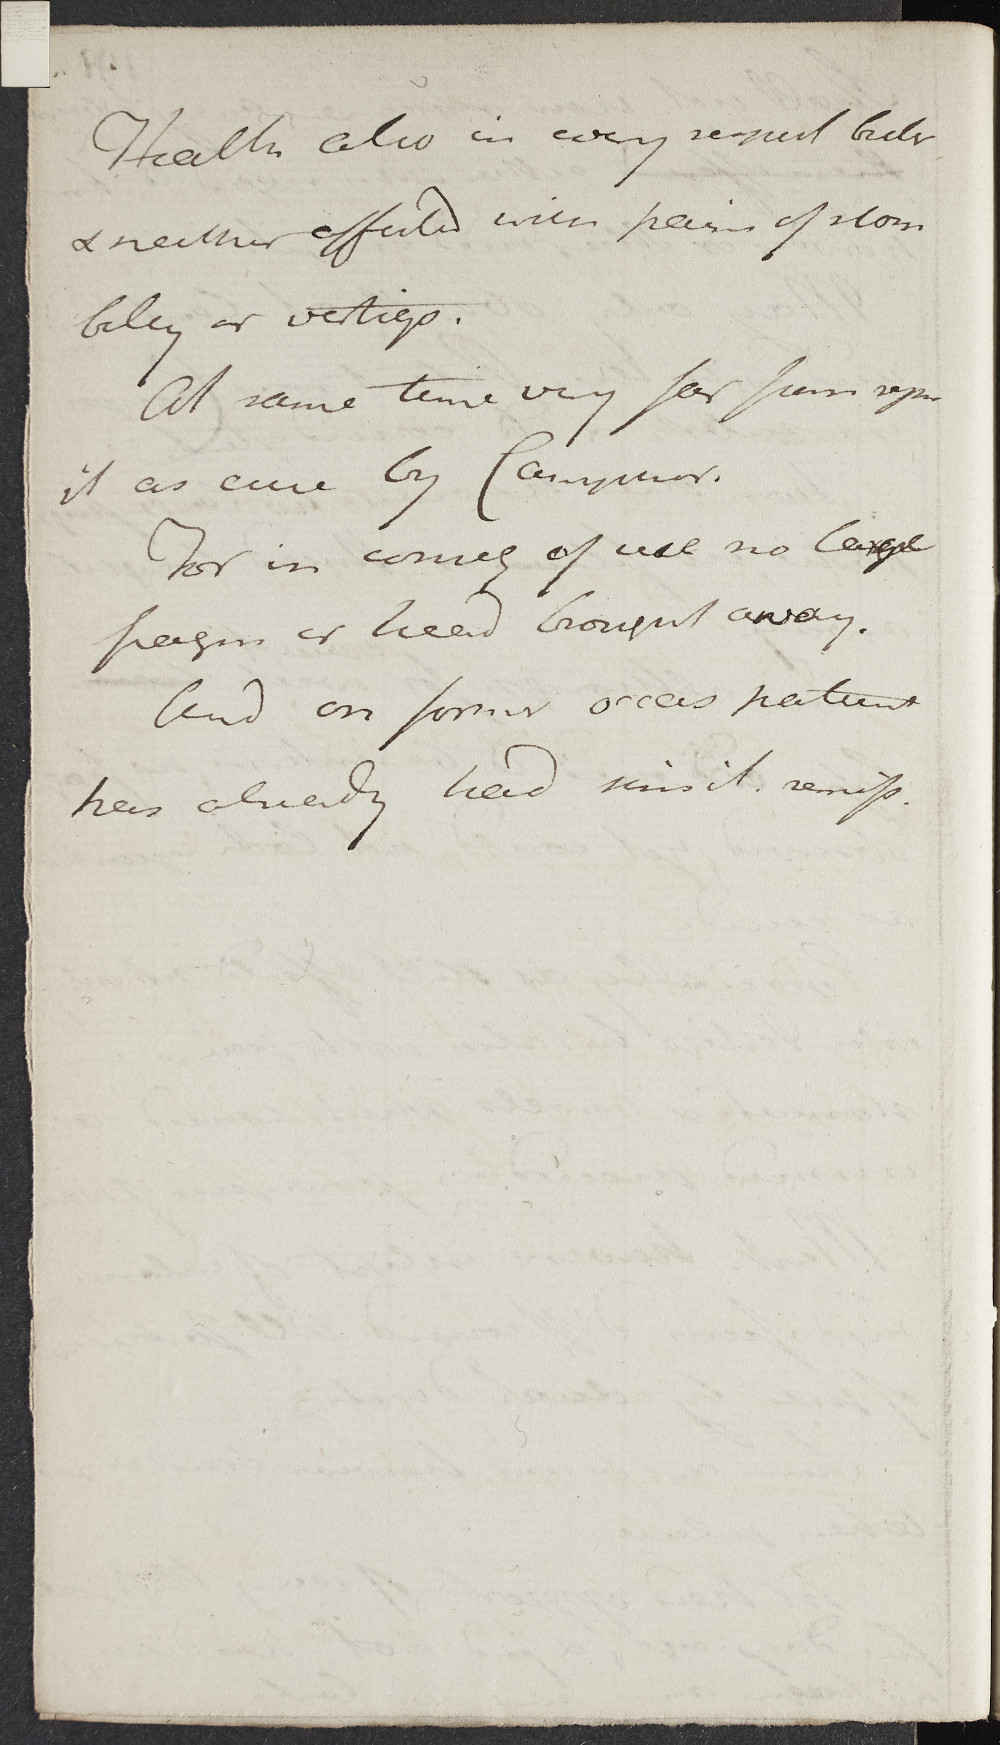 Health also in every respect better
& neither affected with pains of stom
belly or vertigo.
At same time very far from repr
it as cure by
For in course of use no large
fragm or head brought away.
And on former occas patient
has already had simil. remiss.